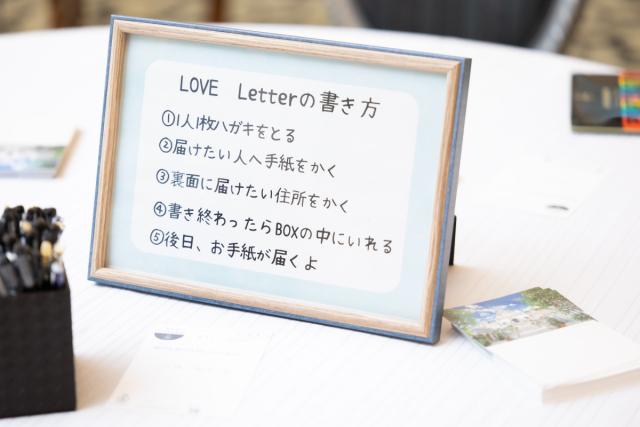 LOVE Letterの書き方
①1人1枚ハガキをとる
②届けたい人へ手紙をかく
③裏面に届けたい住所をかく
④書き終わったらBOXの中にいれる
⑤後日、お手紙が届くよ